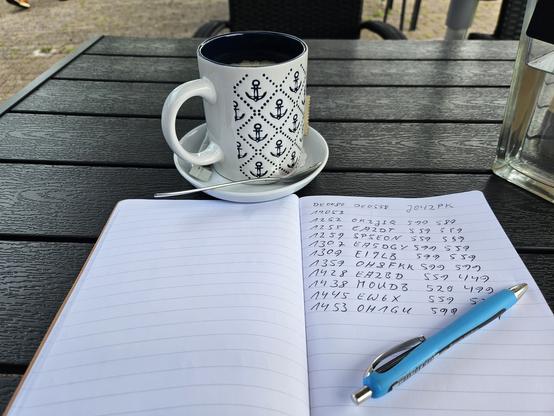 JO42PK
1252 OK2JIQ 599 589
1255 EA2DT 559 559
1259 SP5EON 559 559
1302 EA5DGY 599 599
1309 E17LB 599 559
1359 OH8FKK 599 599
1428 EA2BD 559 449
1438 M0UDB 529 499
1445 EW6X 559
1453 OH1GU 599